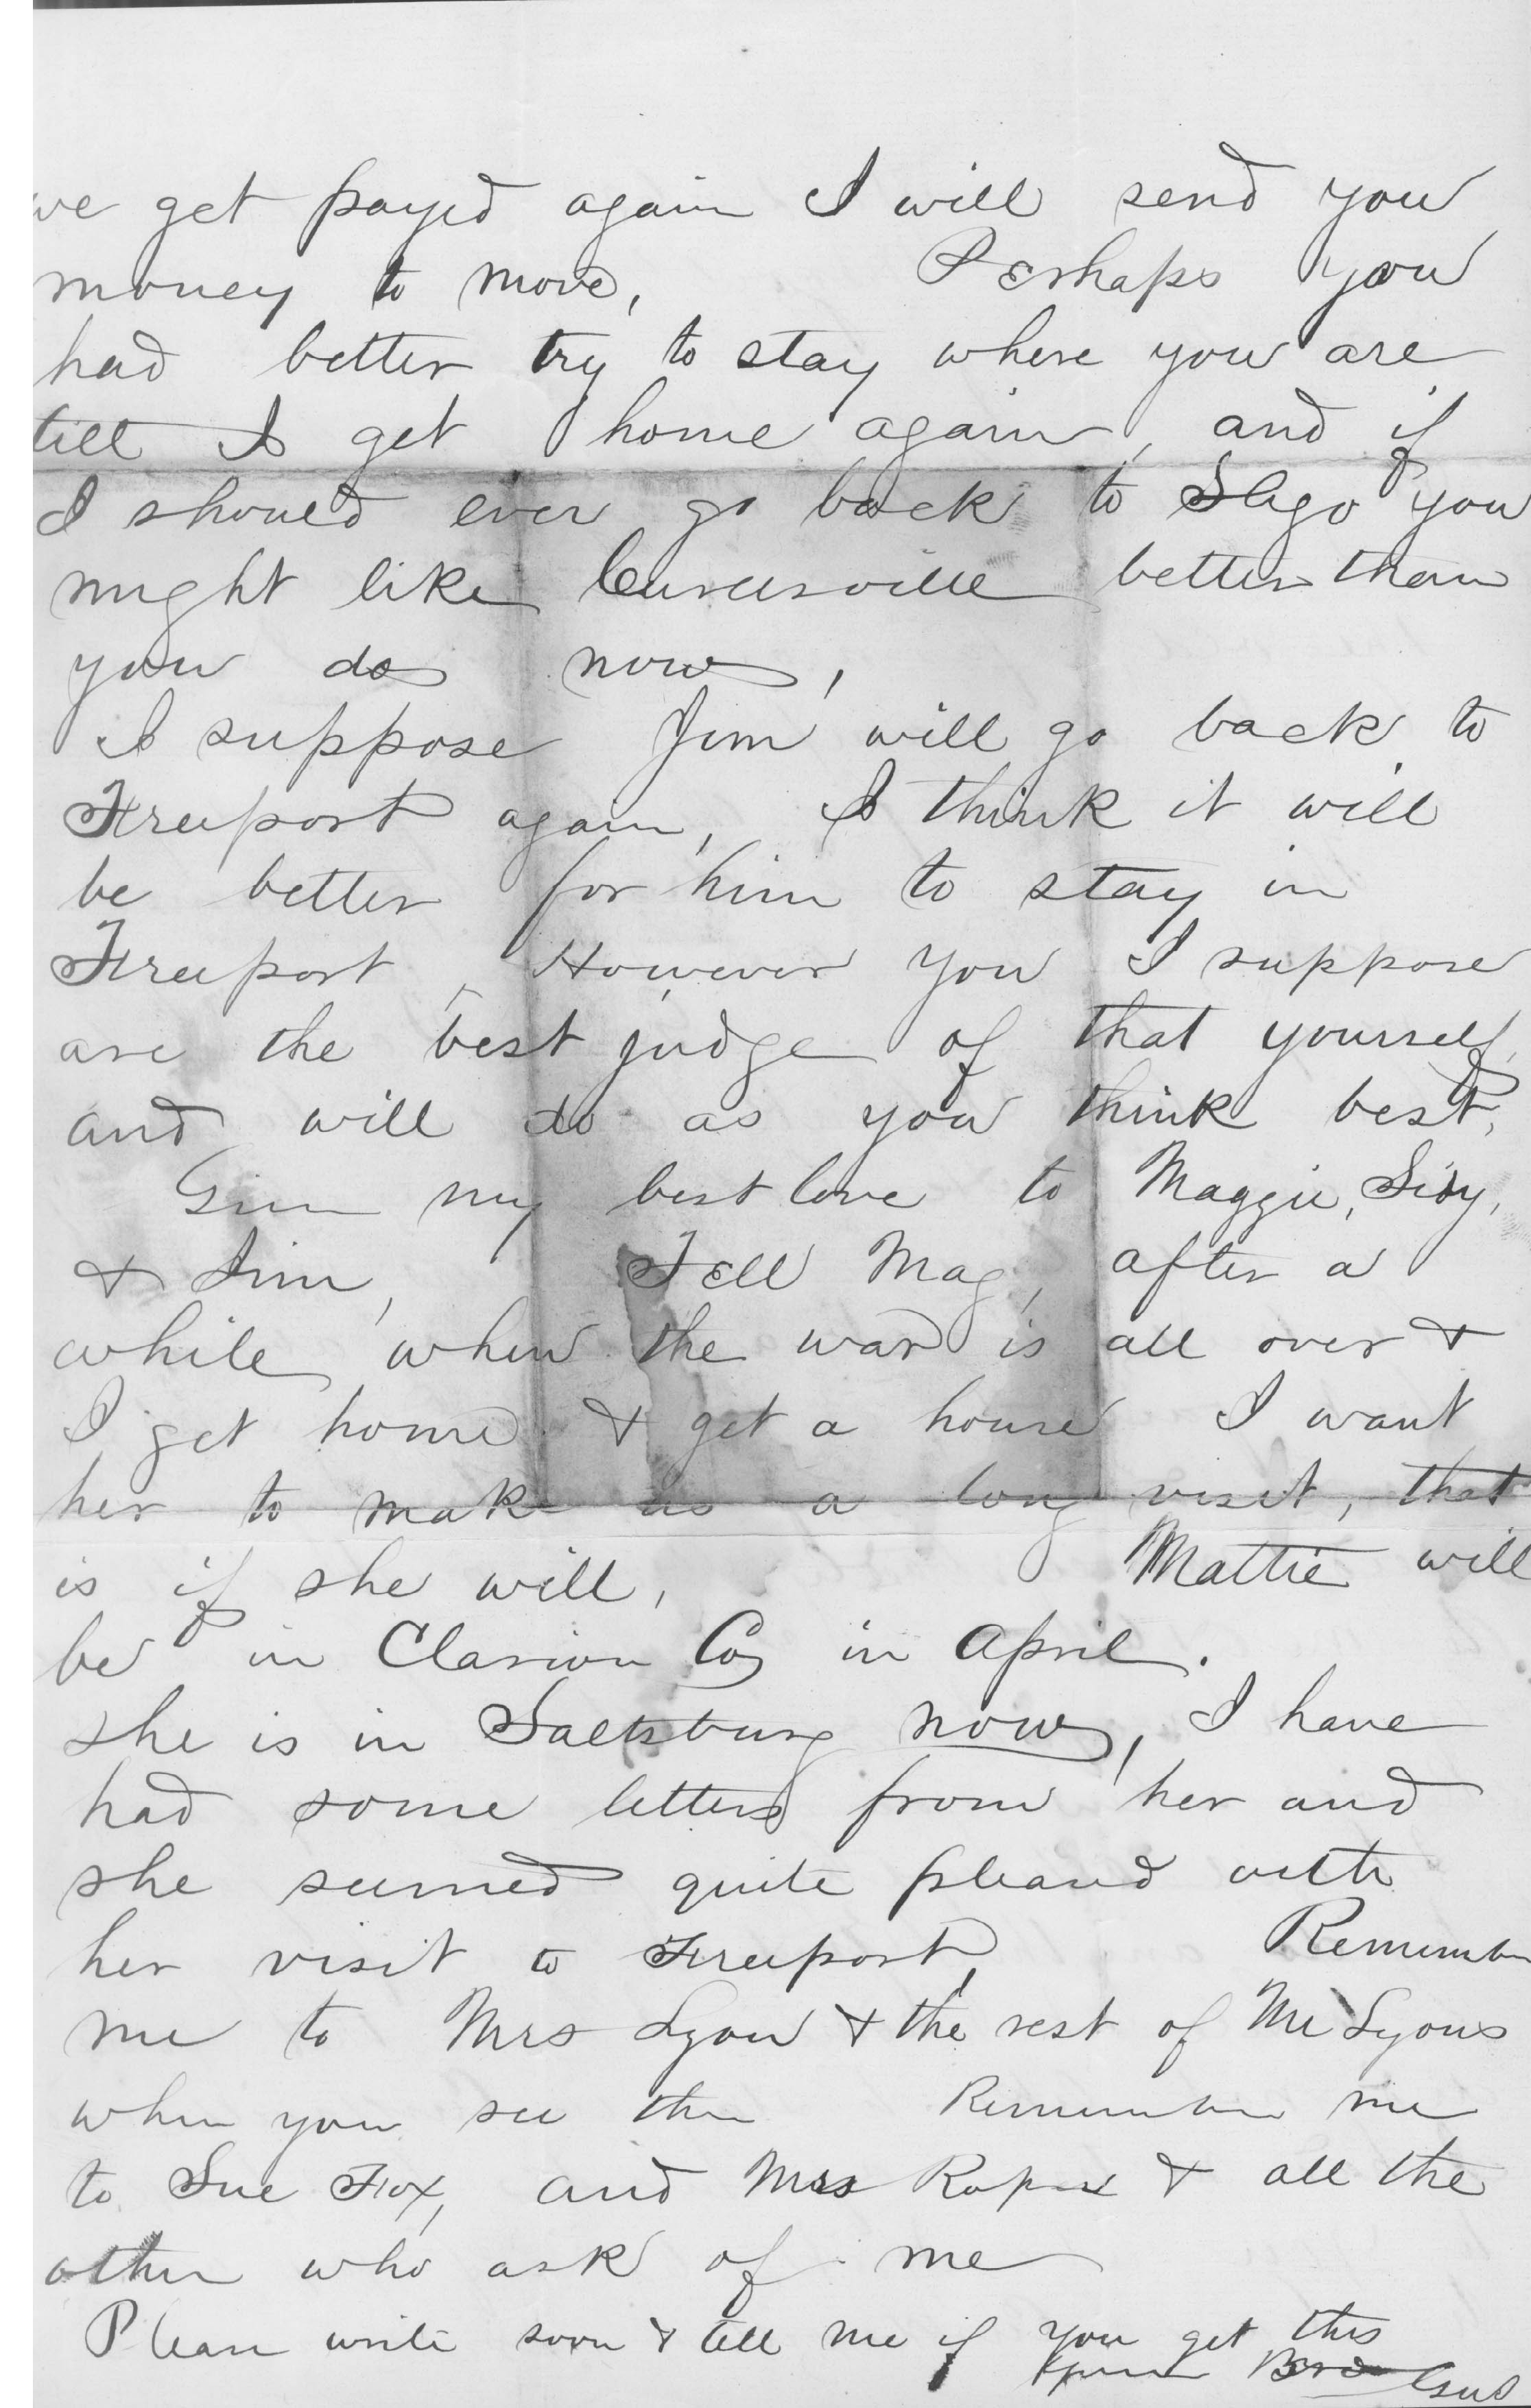 we get payed again I will send you
money to move, Perhaps you
had better try to stay where you are
till I get home again, and if
I should ever go back to Sligo you
might like Curllsville better than
you do now,
I suppose Jim will go back to
Freeport again, I think it will
be better for him to stay in
Freeport However you I suppose
are the best judge of that yourself,
and will do as you think best,
Give my best love to Maggie, Sidy,
& Jim, Tell Mag, after a
while when the war is all over &
I get home & get a house I want
her to make us a long visit, that
is if she will, Mattie will
be in Clarion Co, in April.
she is in Saltsburg now, I have
had some letters from her and
she seemed quite pleased with
her visit to Freeport, Remember
me to Mrs Lyon & the rest of Mr Lyons
when you see them Remember me
to Sue Fox, and Mrs & all the
other who ask of me
Please write soon & tell me if you get this
Your Bro Gus